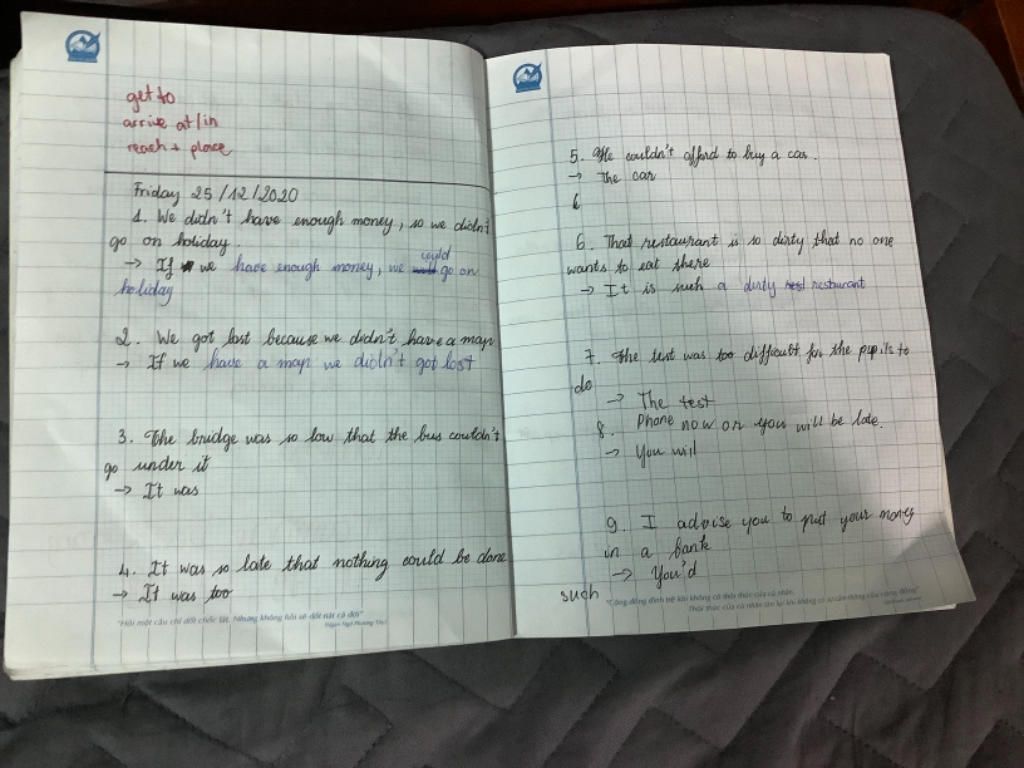 get to
arrive at/in
reach + place
Friday 25/12/2020
1. We didn't have enough money, so we didn't
go on holiday.
→ If we have enough money, we could go on
holiday
2. We got lost because we didn't have a map
→ If we have a map we didn't got lost
3. The bridge was so low that the bus couldn't
go under it
→ It was
4. It was so late that nothing could be done
→ It was too
"Hỏi một câu chỉ dốt chốc lát. Nhưng không hỏi sẽ dốt nát cả đời"
5. He couldn't afford to buy a car.
→ The car
6
6. That restaurant is so dirty that no one
wants to eat there
→ It is such a dirty restaurant
7. The test was too difficult for the pupils to
do
→ The test
8. Phone now or you will be late.
→ You will
9. I advise you to put your money
in a bank
→ You'd
such
"Cộng đồng đình trệ khi không có thôi thúc của cá nhân.
Thôi thúc của cá nhân tàn lụi khi không có sự cảm thông của cộng đồng"